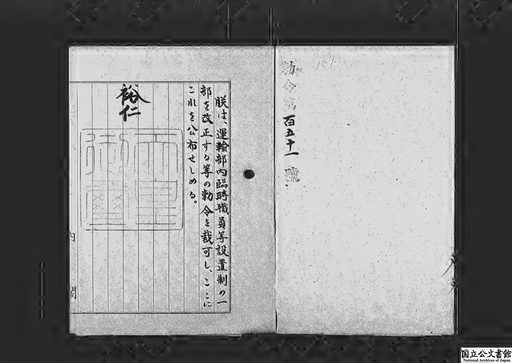 勅令第百五十一號
朕は、運輸部内臨時職員等設置制の一
部を改正する等の勅令を裁可し、ここに
これを公布せしめる。
裕仁
天皇御璽
内閣
国立公文書館
National Archives of Japan